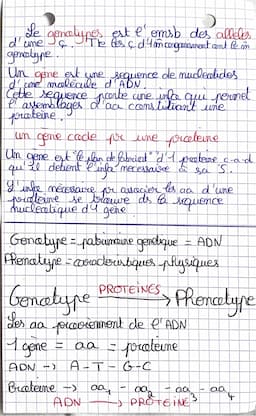 Le genotypes est l'emsb des alleles
d'une ç. Tte les ç d'1 m organisme ont le m
genotype.
Un gene est une sequence de nucleotides
d'une molecule d'ADN.
Cette sequence porte une info qui permet
l'assemblages d'aa constituant une
proteine.
un gene code pr une proteine
Un gene est "le plan de fabric°" d'1 proteine c-a-d
qu'il detient l'info necessaire à sa S.
L'info necessaire pr associer les aa d'une
proteine se trouve ds la sequence
nucleotique d'1 gène.
Genotype = patrimoine genetique = ADN
Phenotype = caracteristiques physiques
PROTEINES
Genotype → Phenotype
Les aa proviennent de l'ADN
1 gène = aa = proteine
ADN → A - T - G - C
Proteine → aa1 - aa2 - aa3 - aa4
ADN → PROTEINE